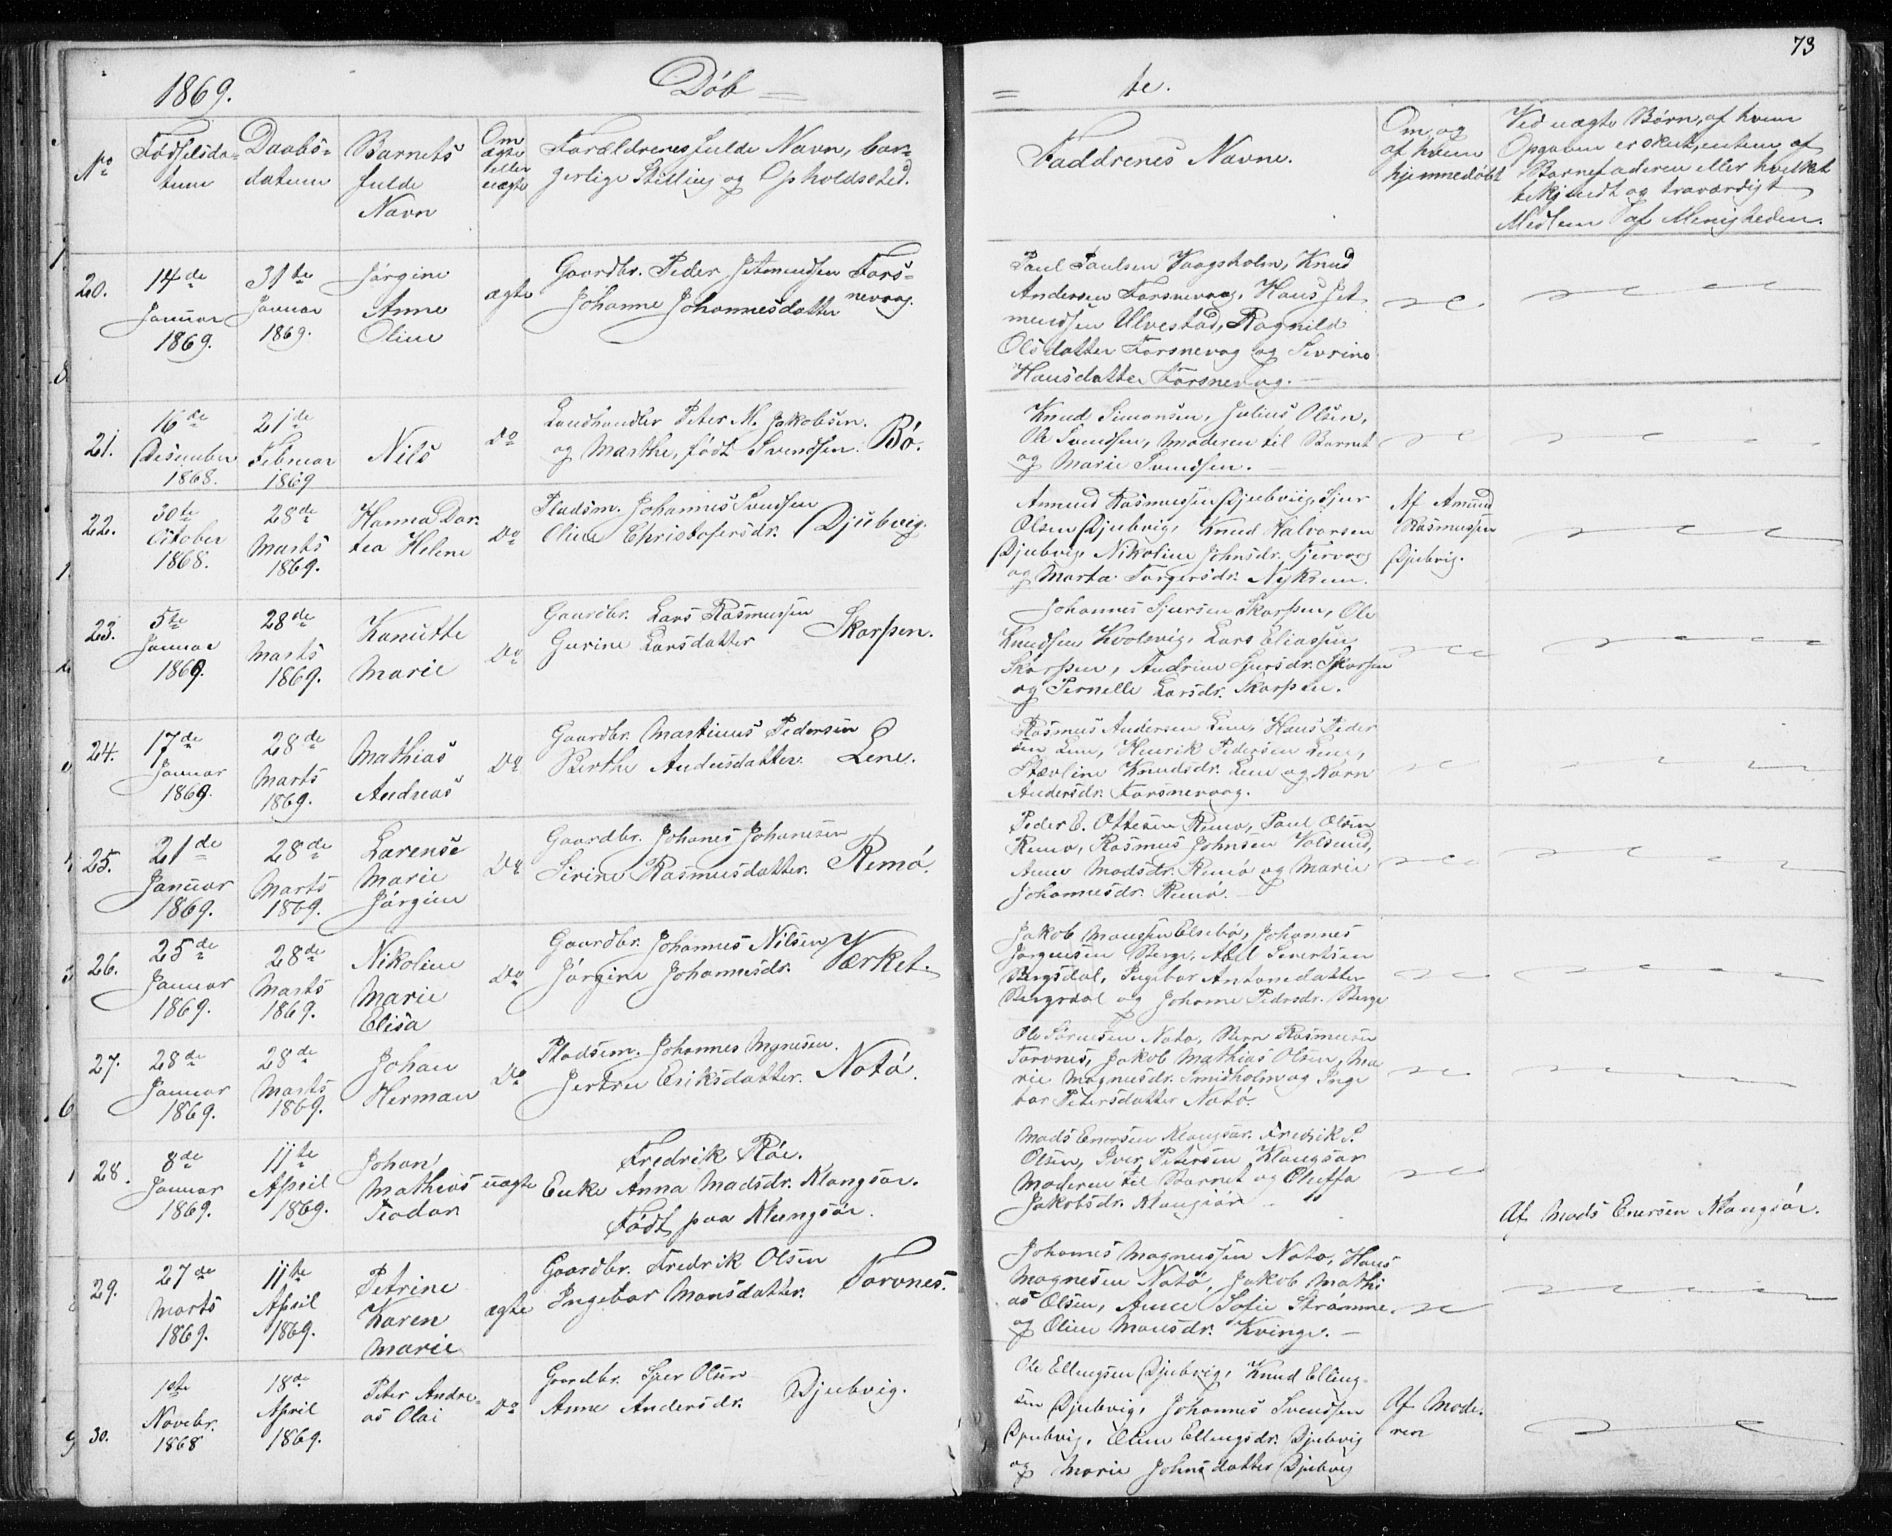 73
1869. Døb = = te.
No
Fødselsda-
tum
Daabs-
datum
Barnets
fulde
Navn
Om
ægte
eller
uægte
Forældrenes fulde Navn, bor-
gerlige Stilling og Opholdssted.
Faddrenes Navne.
Om og
af hvem
hjemmedøbt
Ved uægte Børn, af hvem
Opgaven er skeet, enten af
Barnefaderen eller hvilket
bekjendt og troværdigt
Medlem af Menigheden.
20.
14de
Januar
1869.
31te
Januar
1869.
Jørgine
Anne
Oline
ægte
Gaardbr. Peder Jetmundsen Fors-
Johanne Johannesdatter nevaag.
Paul Paulsen Vaagsholm, Knud
Andersen Forsnevaag, Hans Jet
mundsen Ulvestad, Ragnild
Olsdatter Forsnevag og Sevrine
Hansdatter Forsnevag.
21.
16de
Desember
1868.
21de
Februar
1869
Nils
Do
Landhandler Peter M. Jakobsen.
og Marthe, født Svendsen. Bø.
Knud Simonsen, Julius Olsen,
Ole Svendsen, Moderen til Barnet
og Marie Svendsen.
22.
30te
October
1868.
28de
Marts
1869.
Hanna Dor-
tea Helene
Do
Pladsm. Johannes Svendsen
Oline Christofersdr. Djubvig.
Amund Rasmussen Djubviig, Sjur
Olsen Djubvig, Knud Halvorsen
Djubvig, Nikoline Johnsdr. Tjervaag
og Marta Torgersdr. Nyksun.
Af Amund
Rasmussen
Djubvig.
23.
5te
Januar
1869.
28de
Marts
1869.
Kanutte
Marie
Do
Gaardbr. Lars Rasmussen
Gurine Larsdatter Skorpen.
Johannes Sjursen Skorpen, Ole
Knudsen Kvalsvig, Lars Eliassen
Skorpen, Andrine Sjursdr. Skorpen
og Pernelle Larsdr. Skorpen.
24.
17de
Januar
1869.
28de
Marts
1869.
Mathias
Andreas
Do
Gaardbr. Martinus Pedersen
Berthe Andersdatter. Lene.
Rasmus Andersen Lene, Hans Peder
sen Lene, Henrik Pedersen Lene,
Knudsdr. Lene og Karn
Andersdr. Forsnevaag.
25.
21de
Januar
1869.
28de
Marts
1869.
Larense
Marie
Jørgine
Do
Gaardbr. Johanes Johanesen
Sirine Rasmusdatter. Remø.
Peder E. Ottesen Remø, Paul Olsen
Remø, Rasmus Johnsen Volsund,
Anne Madsdr. Remø og Marie
Johannesdr. Remø.
26.
25de
Januar
1869.
28de
Marts
1869.
Nikoline
Marie
Elisa
Do
Gaardbr. Johannes Nilsen
Jørgine Johannesdr. Værket.
Jakob Monssen Elsebø, Johannes
Jørgensen Berge, Abel Severtsen
Bergsdal, Ingebor Antonsdatter
Bergsdal og Johanne Pedersdr. Berge
27.
28de
Januar
1869.
28de
Marts
1869.
Johan
Herman
Do
Pladsm. Johannes Mgnusen.
Jertru Eriksdatter. Notø.
Ole Notø, Rasmusen
Torvnes, Jakob Mathias Olsen, Ma
rie Magnusdr. Smidholm og Inge
bor Petersdatter Notø.
28.
8de
Januar
1869.
11te
April
1869.
Johan
Mathias
Teodor
uægte
Fredrik Røe.
Enke Anna Madsdr. Klangsør.
Født paa Klungsør.
Mads Enersen Klangsør. Fredrik P.
Olsen, Iver Petersen Klangsør
Moderen til Barnet og Oluffa
Jakobsdr. Klangsør
Af Mads Enersen Klangsør.
29.
27de
Marts
1869.
11te
April
1869.
Petrine
Karen
Marie
ægte
Gaardbr. Fredrik Olsen
Ingebor Monsdatter. Torvnes.
Johannes Magnussen Notø, Hans
Magnesen Notø, Jakob Mathi
as Olsen, Anne Sofie Strømme
og Oline Monsdr. Kvinge.
30.
10de
Novebr.
1868
18de
April
1869.
Peter Andre-
as Olai
Do
Gaardbr. Sjur Olsen
Anne Andersdr. Djubvig.
Ole Ellingsen Djubvig, Knud Elling-
sen Djubvig, Johannes Svendsen
Djubvig, Oline Ellingsdr. Djubvig
og Marie Johnsdatter Djubvig
Af Mode-
ren